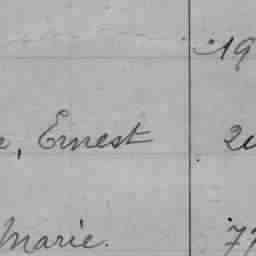 19
e, Ernest 2
Marie. 77